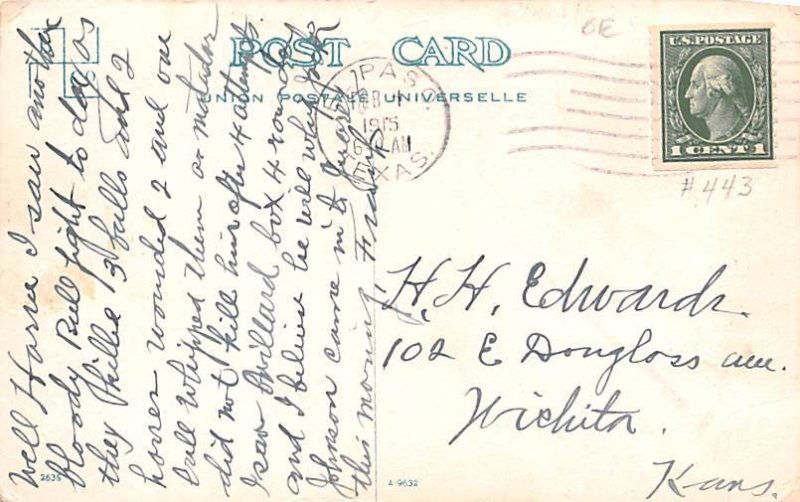 POST CARD
UNION POSTALE UNIVERSELLE
6E
U.S. POSTAGE
1 CENT 1
#443
PASO
FEB
1915
6 AM
TEXAS.
Well Harve I saw another
bloody Bull fight to day
they killed 3 bulls and 2
horses wounded 2 and one
bull whipped them or matador
did not kill him after 4 attempts
I saw Willard box 4 rounds
and I believe he will whip John
Johnson came in to
this morning Frank
H. H. Edwards.
102 E Dougloss ave.
Wichita.
Kans.
2635
A-9632